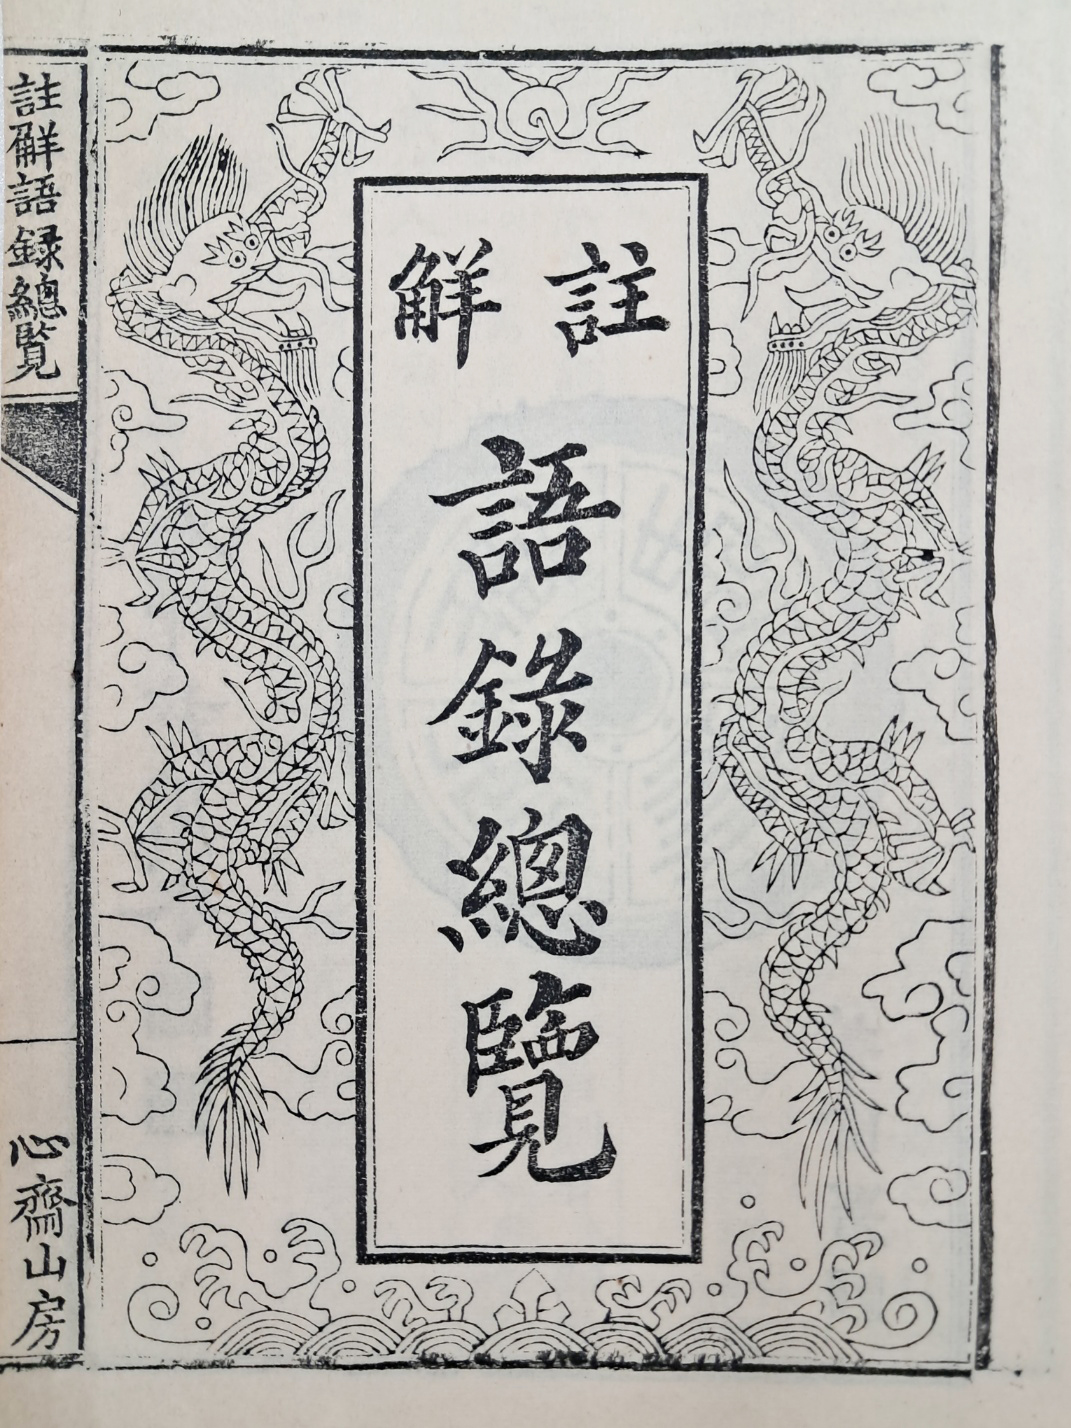 註解
語錄總覽
註解語錄總覽
心齋山房